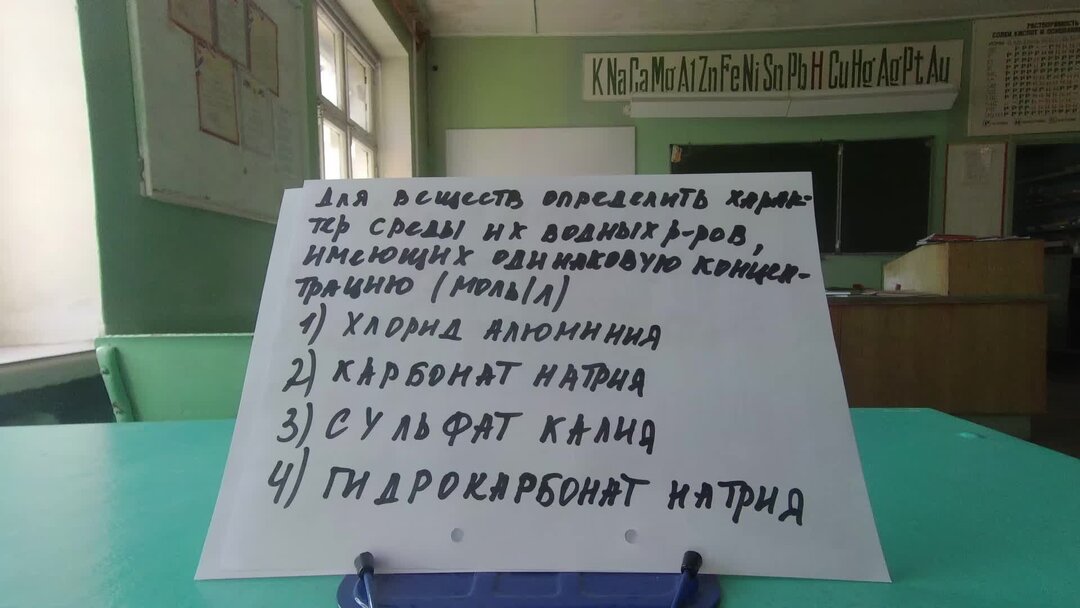 K Na Ca Mg Al Zn Fe Ni Sn Pb H Cu Hg Ag Pt Au
РАСТВОРИМОСТЬ
СОЛЕЙ КИСЛОТ И ОСНОВАН
Для веществ определить харак-
тер среды их водных р-ров,
имеющих одинаковую концен-
трацию (моль/л)
1) ХЛОРИД АЛЮМИНИЯ
2) КАРБОНАТ НАТРИЯ
3) СУЛЬФАТ КАЛИЯ
4) ГИДРОКАРБОНАТ НАТРИЯ